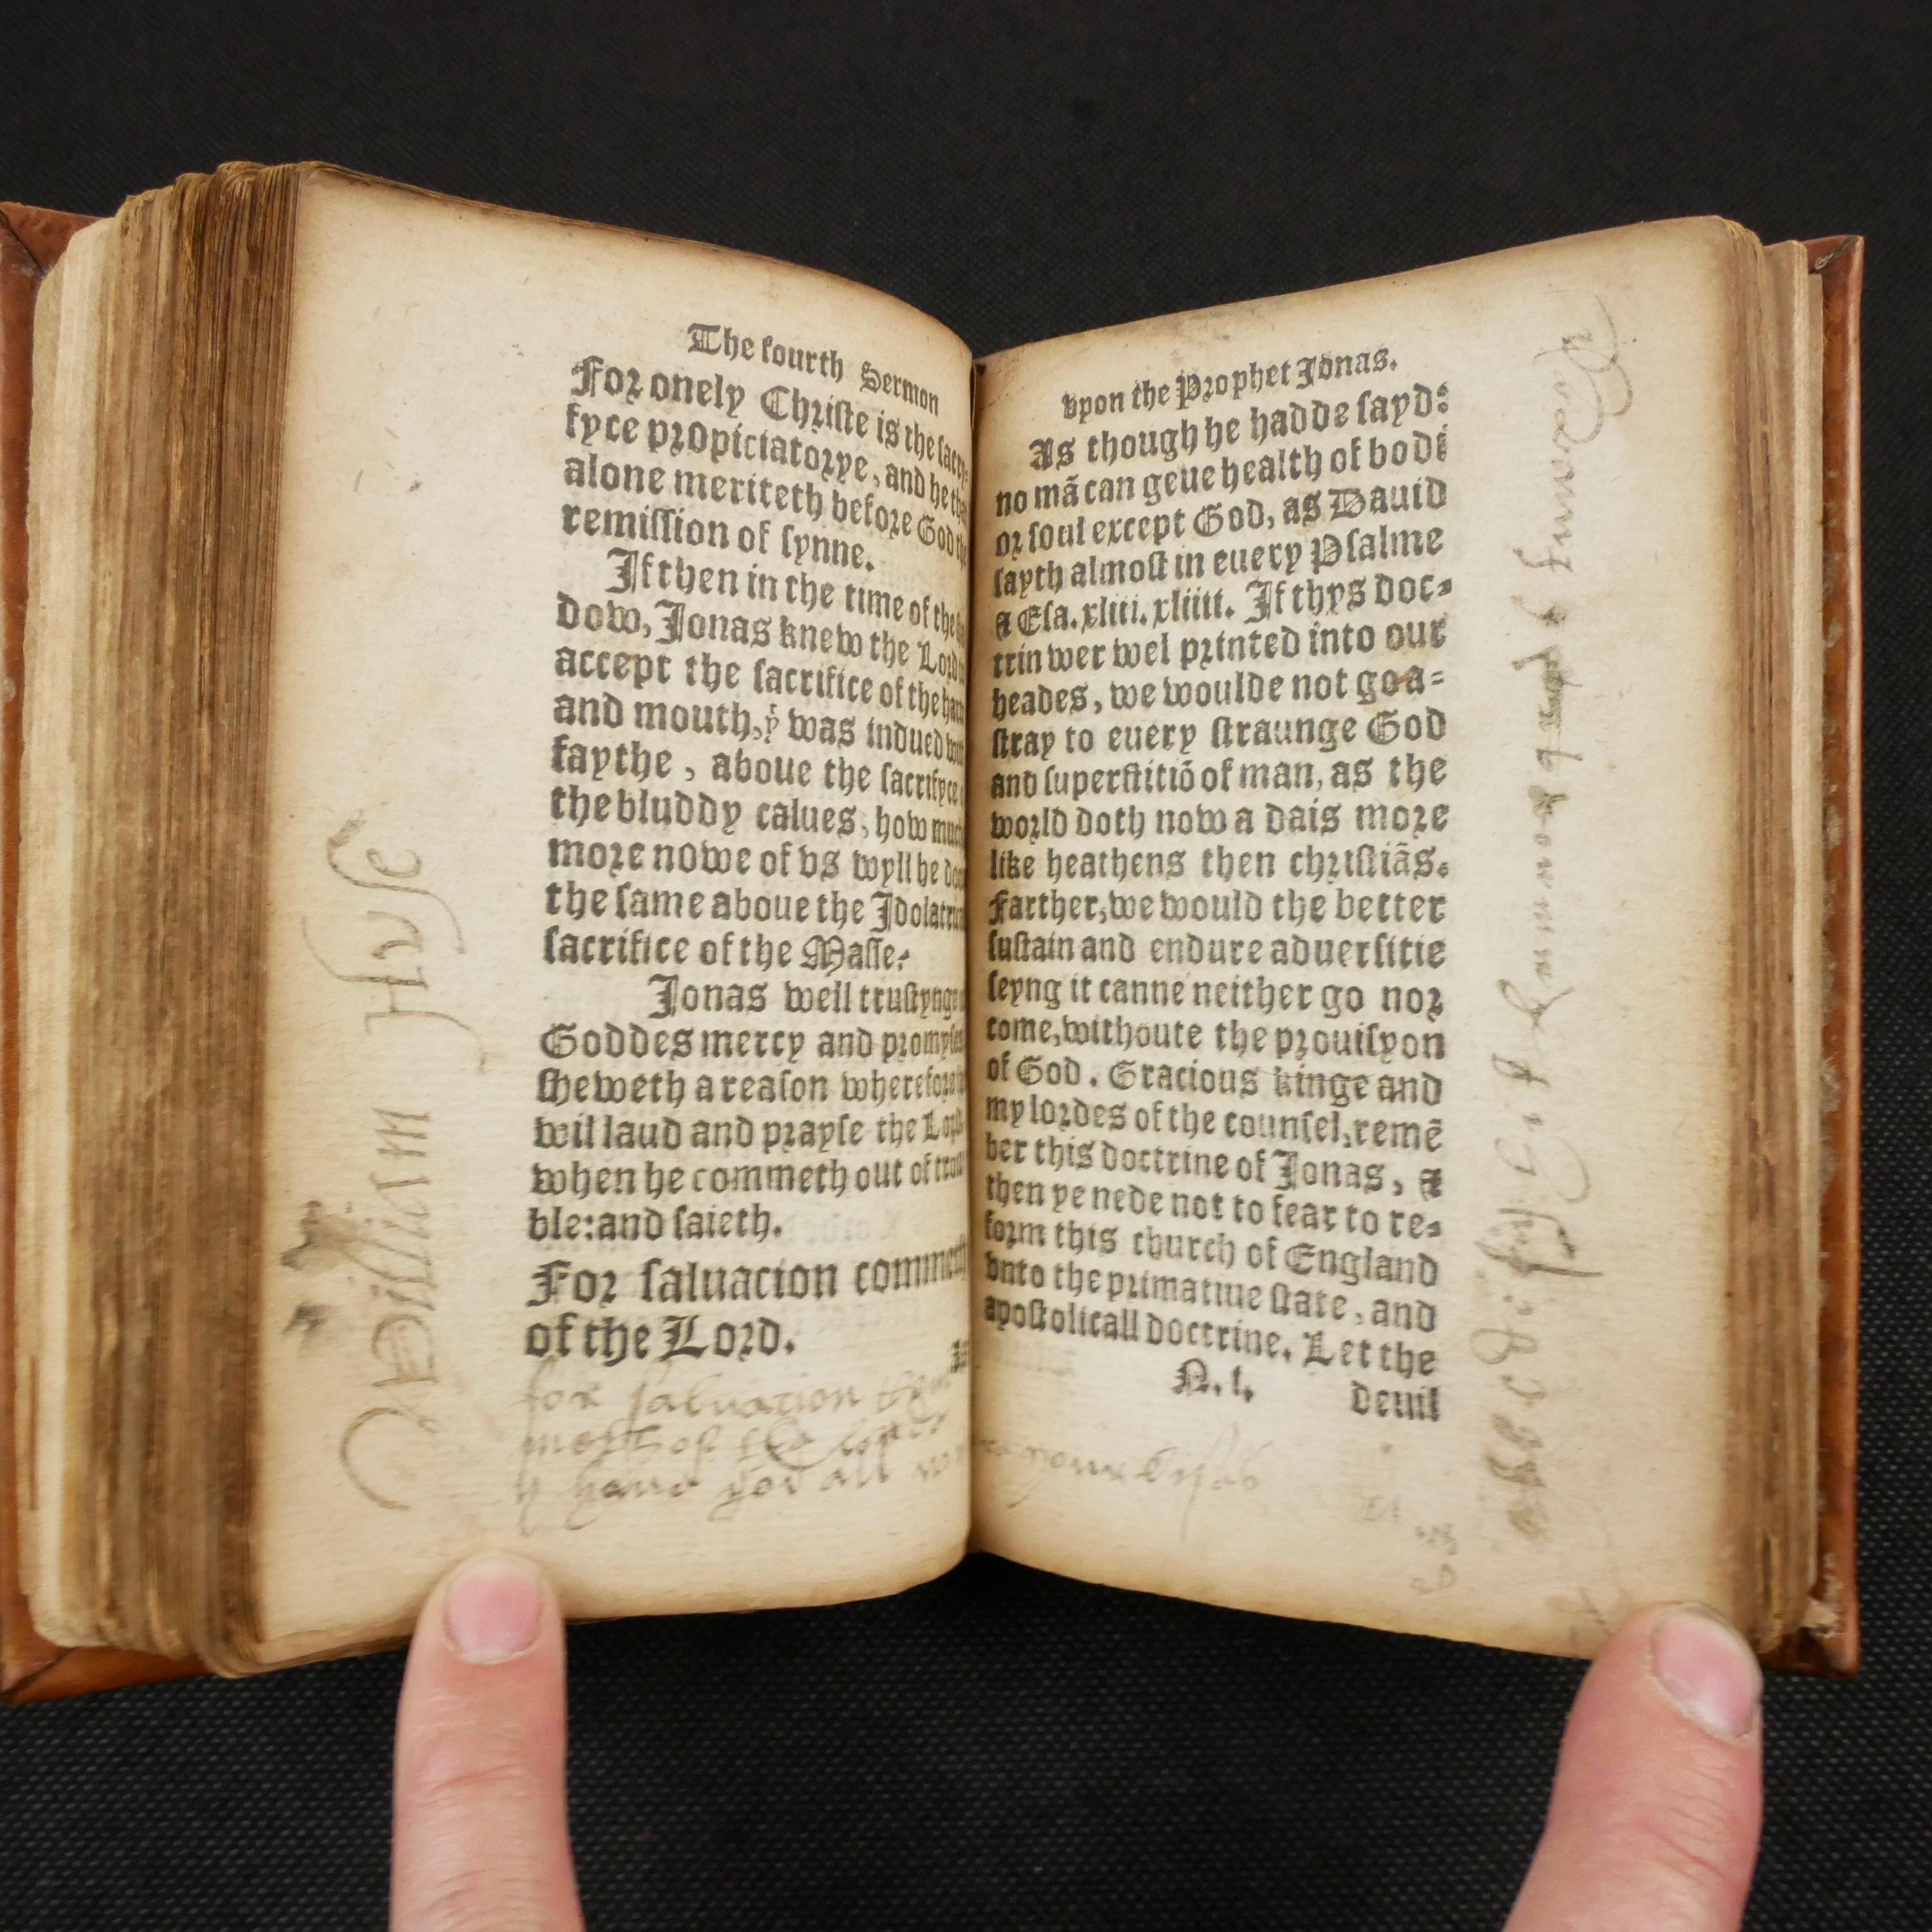 The fourth Sermon
For onely Chriſte is the ſacry-
fyce propiciatorye, and he
alone meriteth before God
remiſſion of ſynne.
If then in the time of the
dow, Jonas knew the Lord
accept the ſacrifice of the
and mouth, yͭ was indued
faythe, aboue the ſacrifyce
the bluddy calues, how much
more nowe of vs wyll he
the ſame aboue the
ſacrifice of the Maſſe?
Jonas well truſtynge
Goddes mercy and
ſheweth a reaſon wherefore
wil laud and prayſe the Lord
when he commeth out of
ble: and ſaieth.
For ſaluacion commeth
of the Lord.
for ſaluation
of the
y haue you all
William Huſe
vpon the Prophet Jonas.
As though he hadde ſayd:
no mā can geue health of bodi
or ſoul except God, as Dauid
ſayth almoſt in euery Pſalme
& Eſa. xliii. xliiii. If thys doc-
trin wer wel printed into our
heades, we woulde not go a-
ſtray to euery ſtraunge God
and ſuperſtitiō of man, as the
world doth now a dais more
like heathens then chriſtiās.
Farther, we would the better
ſuſtain and endure aduerſitie
ſeyng it canne neither go nor
come, withoute the prouiſyon
of God. Gracious kinge and
my lordes of the counſel, remē
ber this doctrine of Jonas, &
then ye nede not to fear to re-
form this church of England
vnto the primatiue ſtate, and
apoſtolicall doctrine. Let the
N. i. deuil